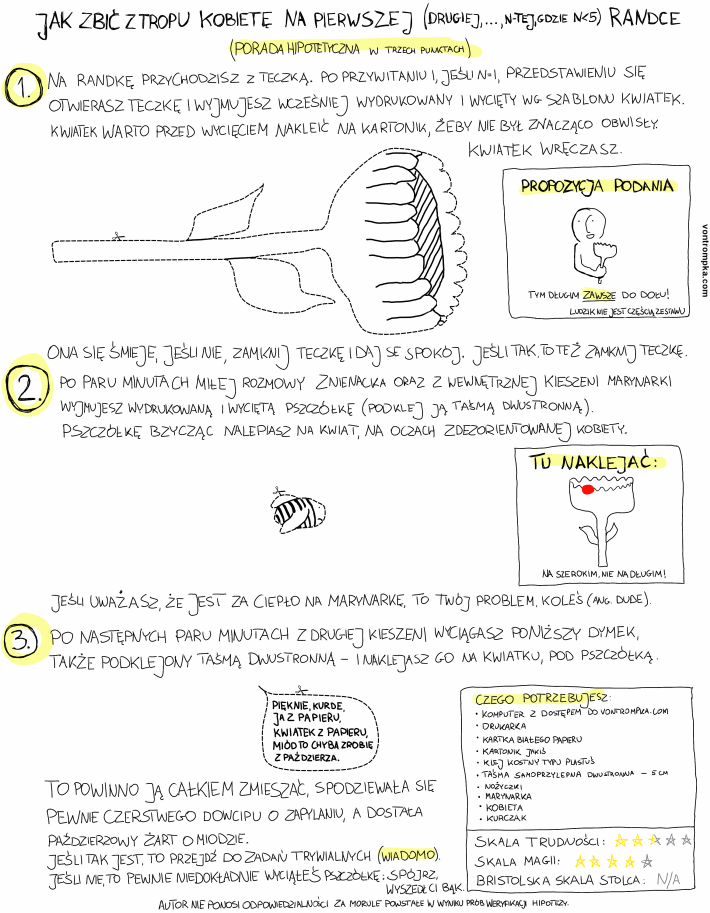 JAK ZBIĆ Z TROPU KOBIETĘ NA PIERWSZEJ (DRUGIEJ,...,N-TEJ, GDZIE N<5) RANDCE
(PORADA HIPOTETYCZNA W TRZECH PUNKTACH)
1. NA RANDKĘ PRZYCHODZISZ Z TECZKĄ. PO PRZYWITANIU I, JEŚLI N=1, PRZEDSTAWIENIU SIĘ
OTWIERASZ TECZKĘ I WYJMUJESZ WCZEŚNIEJ WYDRUKOWANY I WYCIĘTY WG SZABLONU KWIATEK.
KWIATEK WARTO PRZED WYCIĘCIEM NAKLEIĆ NA KARTONIK, ŻEBY NIE BYŁ ZNACZĄCO OBWISŁY.
KWIATEK WRĘCZASZ.
PROPOZYCJA PODANIA
TYM DŁUGIM ZAWSZE DO DOŁU!
LUDZIK NIE JEST CZĘŚCIĄ ZESTAWU
vontrompka.com
ONA SIĘ ŚMIEJE, JEŚLI NIE, ZAMKNIJ TECZKĘ I DAJ SE SPOKÓJ. JEŚLI TAK, TO TEŻ ZAMKNIJ TECZKĘ.
2. PO PARU MINUTACH MIŁEJ ROZMOWY ZNIENACKA ORAZ Z WEWNĘTRZNEJ KIESZENI MARYNARKI
WYJMUJESZ WYDRUKOWANĄ I WYCIĘTĄ PSZCZÓŁKĘ (PODKLEJ JĄ TAŚMĄ DWUSTRONNĄ).
PSZCZÓŁKĘ BZYCZĄC NALEPIASZ NA KWIAT, NA OCZACH ZDEZORIENTOWANEJ KOBIETY.
TU NAKLEJAĆ:
NA SZEROKIM, NIE NA DŁUGIM!
JEŚLI UWAŻASZ, ŻE JEST ZA CIEPŁO NA MARYNARKĘ, TO TWÓJ PROBLEM, KOLEŚ (ANG. DUDE).
3. PO NASTĘPNYCH PARU MINUTACH Z DRUGIEJ KIESZENI WYCIĄGASZ PONIŻSZY DYMEK,
TAKŻE PODKLEJONY TAŚMĄ DWUSTRONNĄ – I NAKLEJASZ GO NA KWIATKU, POD PSZCZÓŁKĄ.
PIĘKNIE, KURDE,
JA Z PAPIERU,
KWIATEK Z PAPIERU,
MIÓD TO CHYBA ZROBIĘ
Z PAŹDZIERZA.
TO POWINNO JĄ CAŁKIEM ZMIESZAĆ, SPODZIEWAŁA SIĘ
PEWNIE CZERSTWEGO DOWCIPU O ZAPYLANIU, A DOSTAŁA
PAŹDZIERZOWY ŻART O MIODZIE.
JEŚLI TAK JEST, TO PRZEJDŹ DO ZADAŃ TRYWIALNYCH (WIADOMO).
JEŚLI NIE, TO PEWNIE NIEDOKŁADNIE WYCIĄŁEŚ PSZCZÓŁKĘ: SPÓJRZ,
WYSZEDŁ CI BĄK.
CZEGO POTRZEBUJESZ:
• KOMPUTER Z DOSTĘPEM DO VONTROMPKA.COM
• DRUKARKA
• KARTKA BIAŁEGO PAPIERU
• KARTONIK JAKIŚ
• KLEJ KOSTNY TYPU PLASTUŚ
• TAŚMA SAMOPRZYLEPNA DWUSTRONNA – 5 CM
• NOŻYCZKI
• MARYNARKA
• KOBIETA
• KURCZAK
SKALA TRUDNOŚCI:
SKALA MAGII:
BRISTOLSKA SKALA STOLCA: N/A
AUTOR NIE PONOSI ODPOWIEDZIALNOŚCI ZA MORULE POWSTAŁE W WYNIKU PRÓB WERYFIKACJI HIPOTEZY.